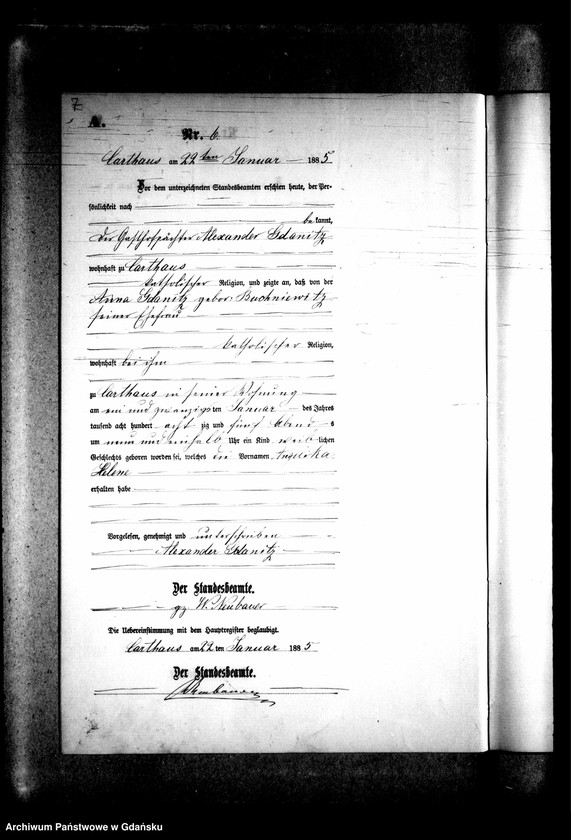 7
A.
Nr. 6.
Carthaus am 22ten Januar 1885
Vor dem unterzeichneten Standesbeamten erschien heute, der Per-
sönlichkeit nach
be kannt,
der Gasthofpächter Alexander Gdanitz
wohnhaft zu Carthaus
katholischer Religion, und zeigte an, daß von der
Anna Gdanitz gebor: Buchniewitz
seiner Ehefrau
katholischer Religion,
wohnhaft bei ihm
zu Carthaus in seiner Wohnung
am ein und zwanzigsten Januar des Jahres
tausend acht hundert acht zig und fünf Abend s
um neun und einhalb Uhr ein Kind weib lichen
Geschlechts geboren worden sei, welches die Vornamen Angelika
Helene
erhalten habe
Vorgelesen, genehmigt und unterschrieben
Alexander Gdanitz
Der Standesbeamte.
gz. W. Neubauer
Die Uebereinstimmung mit dem Hauptregister beglaubigt.
Carthaus am 22 ten Januar 1885
Der Standesbeamte.
Neubauer
Archiwum Państwowe w Gdańsku